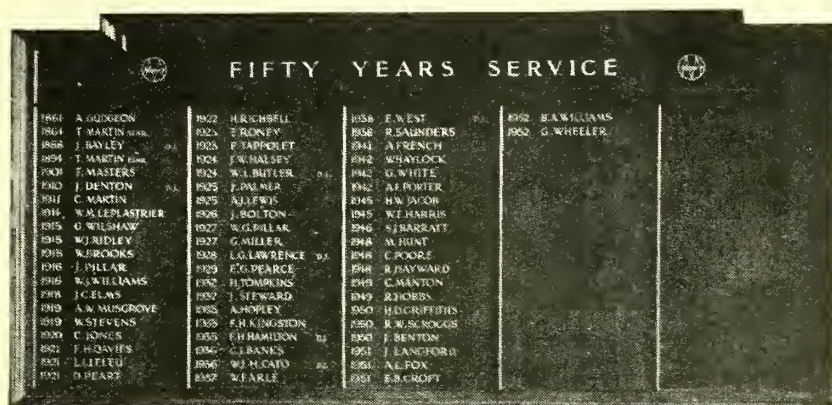 FIFTY YEARS SERVICE
A. GUDGEON
1864 T. MARTIN
J. BAYLEY
1894 T. MARTIN
T. MASTERS
1910 J. DENTON D.J.
1911 C. MARTIN
1914 W.M. LEPLASTRIER
1915 G. WILSHAW
1915 W.J. RIDLEY
1915 W. BROOKS
1916 J. PILLAR
1916 W.J. WILLIAMS
1918 J.C. ELMS
1919 A.W. MUSGROVE
1919 W. STEVENS
1920 C. JONES
1921 F.H. DAVIES
1921
1921 D. PEART
1922 H. RICHBELL
1923 T. RONEY
1923 F. TAPPOLET
1924 J.W. HALSEY
1924 W.L. BUTLER D.J.
1925 J. PALMER
1925 A.J. LEWIS
1926 J. BOLTON
1927 W.G. PILLAR
1927 G. MILLER
1928 L.G. LAWRENCE D.J.
1929 E.G. PEARCE
1932 H. TOMPKINS
J. STEWARD
A. HOPLEY
1935 F.H. KINGSTON
1935 F.H. HAMILTON D.J.
1936 C.J. BANKS
1936 W.J.H. CATO D.J.
1937 W. EARLE
1938 E. WEST D.J.
1938 R. SAUNDERS
1941 A. FRENCH
1942 W. HAYLOCK
1942 G. WHITE
1942 A.F. PORTER
1945 H.W. JACOB
1945 W.T. HARRIS
1946 S.J. BARRATT
1948 M. HUNT
1948 C. POORE
1948 R. HAYWARD
1949 C. MANTON
1949 R. HOBBS
1950 H.D. GRIFFITHS
1950 R.W. SCROGGS
1950 J. BENTON
1951 J. LANGFORD
1951 A.L. FOX
1951 E.B. CROFT
1952 B.A. WILLIAMS
1952 G. WHEELER